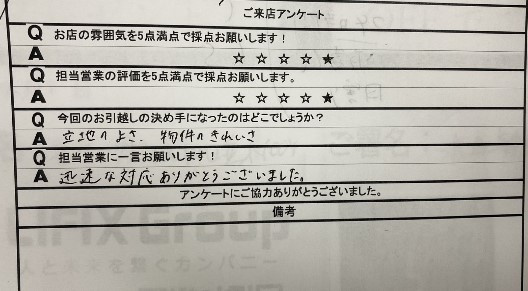 ご来店アンケート
Q お店の雰囲気を5点満点で採点お願いします!
A ☆ ☆ ☆ ☆ ★
Q 担当営業の評価を5点満点で採点お願いします。
A ☆ ☆ ☆ ☆ ★
Q 今回のお引越しの決め手になったのはどこでしょうか?
A 立地のよさ、物件のきれいさ
Q 担当営業に一言お願いします!
A 迅速な対応ありがとうございました。
アンケートにご協力ありがとうございました。
備考
LIFIX Group
人と未来を繋ぐカンパニー